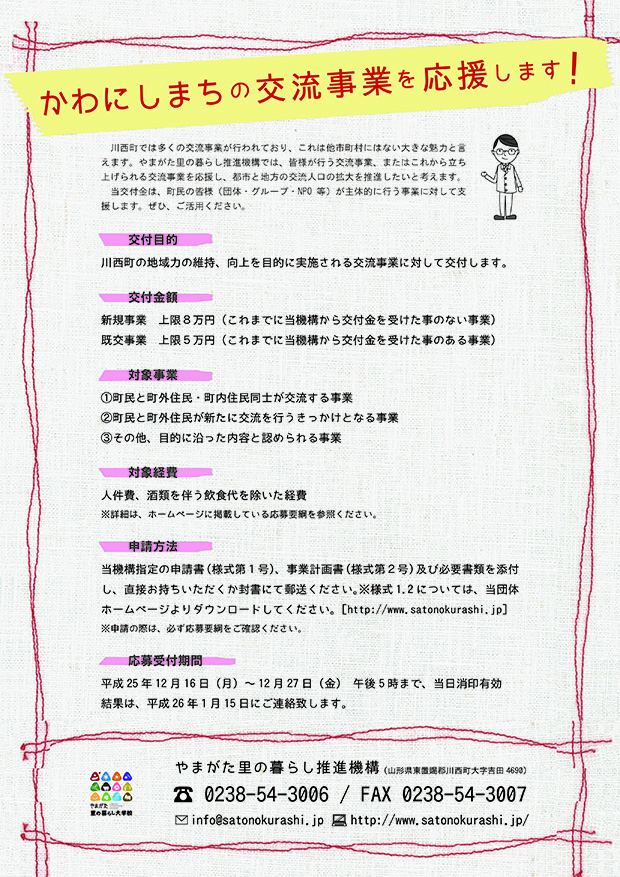 かわにしまちの交流事業を応援します!
川西町では多くの交流事業が行われており、これは他市町村にはない大きな魅力と言
えます。やまがた里の暮らし推進機構では、皆様が行う交流事業、またはこれから立ち
上げられる交流事業を応援し、都市と地方の交流人口の拡大を推進したいと考えます。
当交付金は、町民の皆様(団体・グループ・NPO 等)が主体的に行う事業に対して支
援します。ぜひ、ご活用ください。
交付目的
川西町の地域力の維持、向上を目的に実施される交流事業に対して交付します。
交付金額
新規事業 上限8万円(これまでに当機構から交付金を受けた事のない事業)
既交事業 上限5万円(これまでに当機構から交付金を受けた事のある事業)
対象事業
①町民と町外住民・町内住民同士が交流する事業
②町民と町外住民が新たに交流を行うきっかけとなる事業
③その他、目的に沿った内容と認められる事業
対象経費
人件費、酒類を伴う飲食代を除いた経費
※詳細は、ホームページに掲載している応募要綱を参照ください。
申請方法
当機構指定の申請書(様式第1号)、事業計画書(様式第2号)及び必要書類を添付
し、直接お持ちいただくか封書にて郵送ください。※様式1.2については、当団体
ホームページよりダウンロードしてください。[http://www.satonokurashi.jp]
※申請の際は、必ず応募要綱をご確認ください。
応募受付期間
平成25年12月16日(月)～12月27日(金) 午後5時まで、当日消印有効
結果は、平成26年1月15日にご連絡致します。
やまがた里の暮らし推進機構(山形県東置賜郡川西町大字吉田4690)
☎ 0238-54-3006 / FAX 0238-54-3007
info@satonokurashi.jp http://www.satonokurashi.jp/
やまがた
里の暮らし大学校